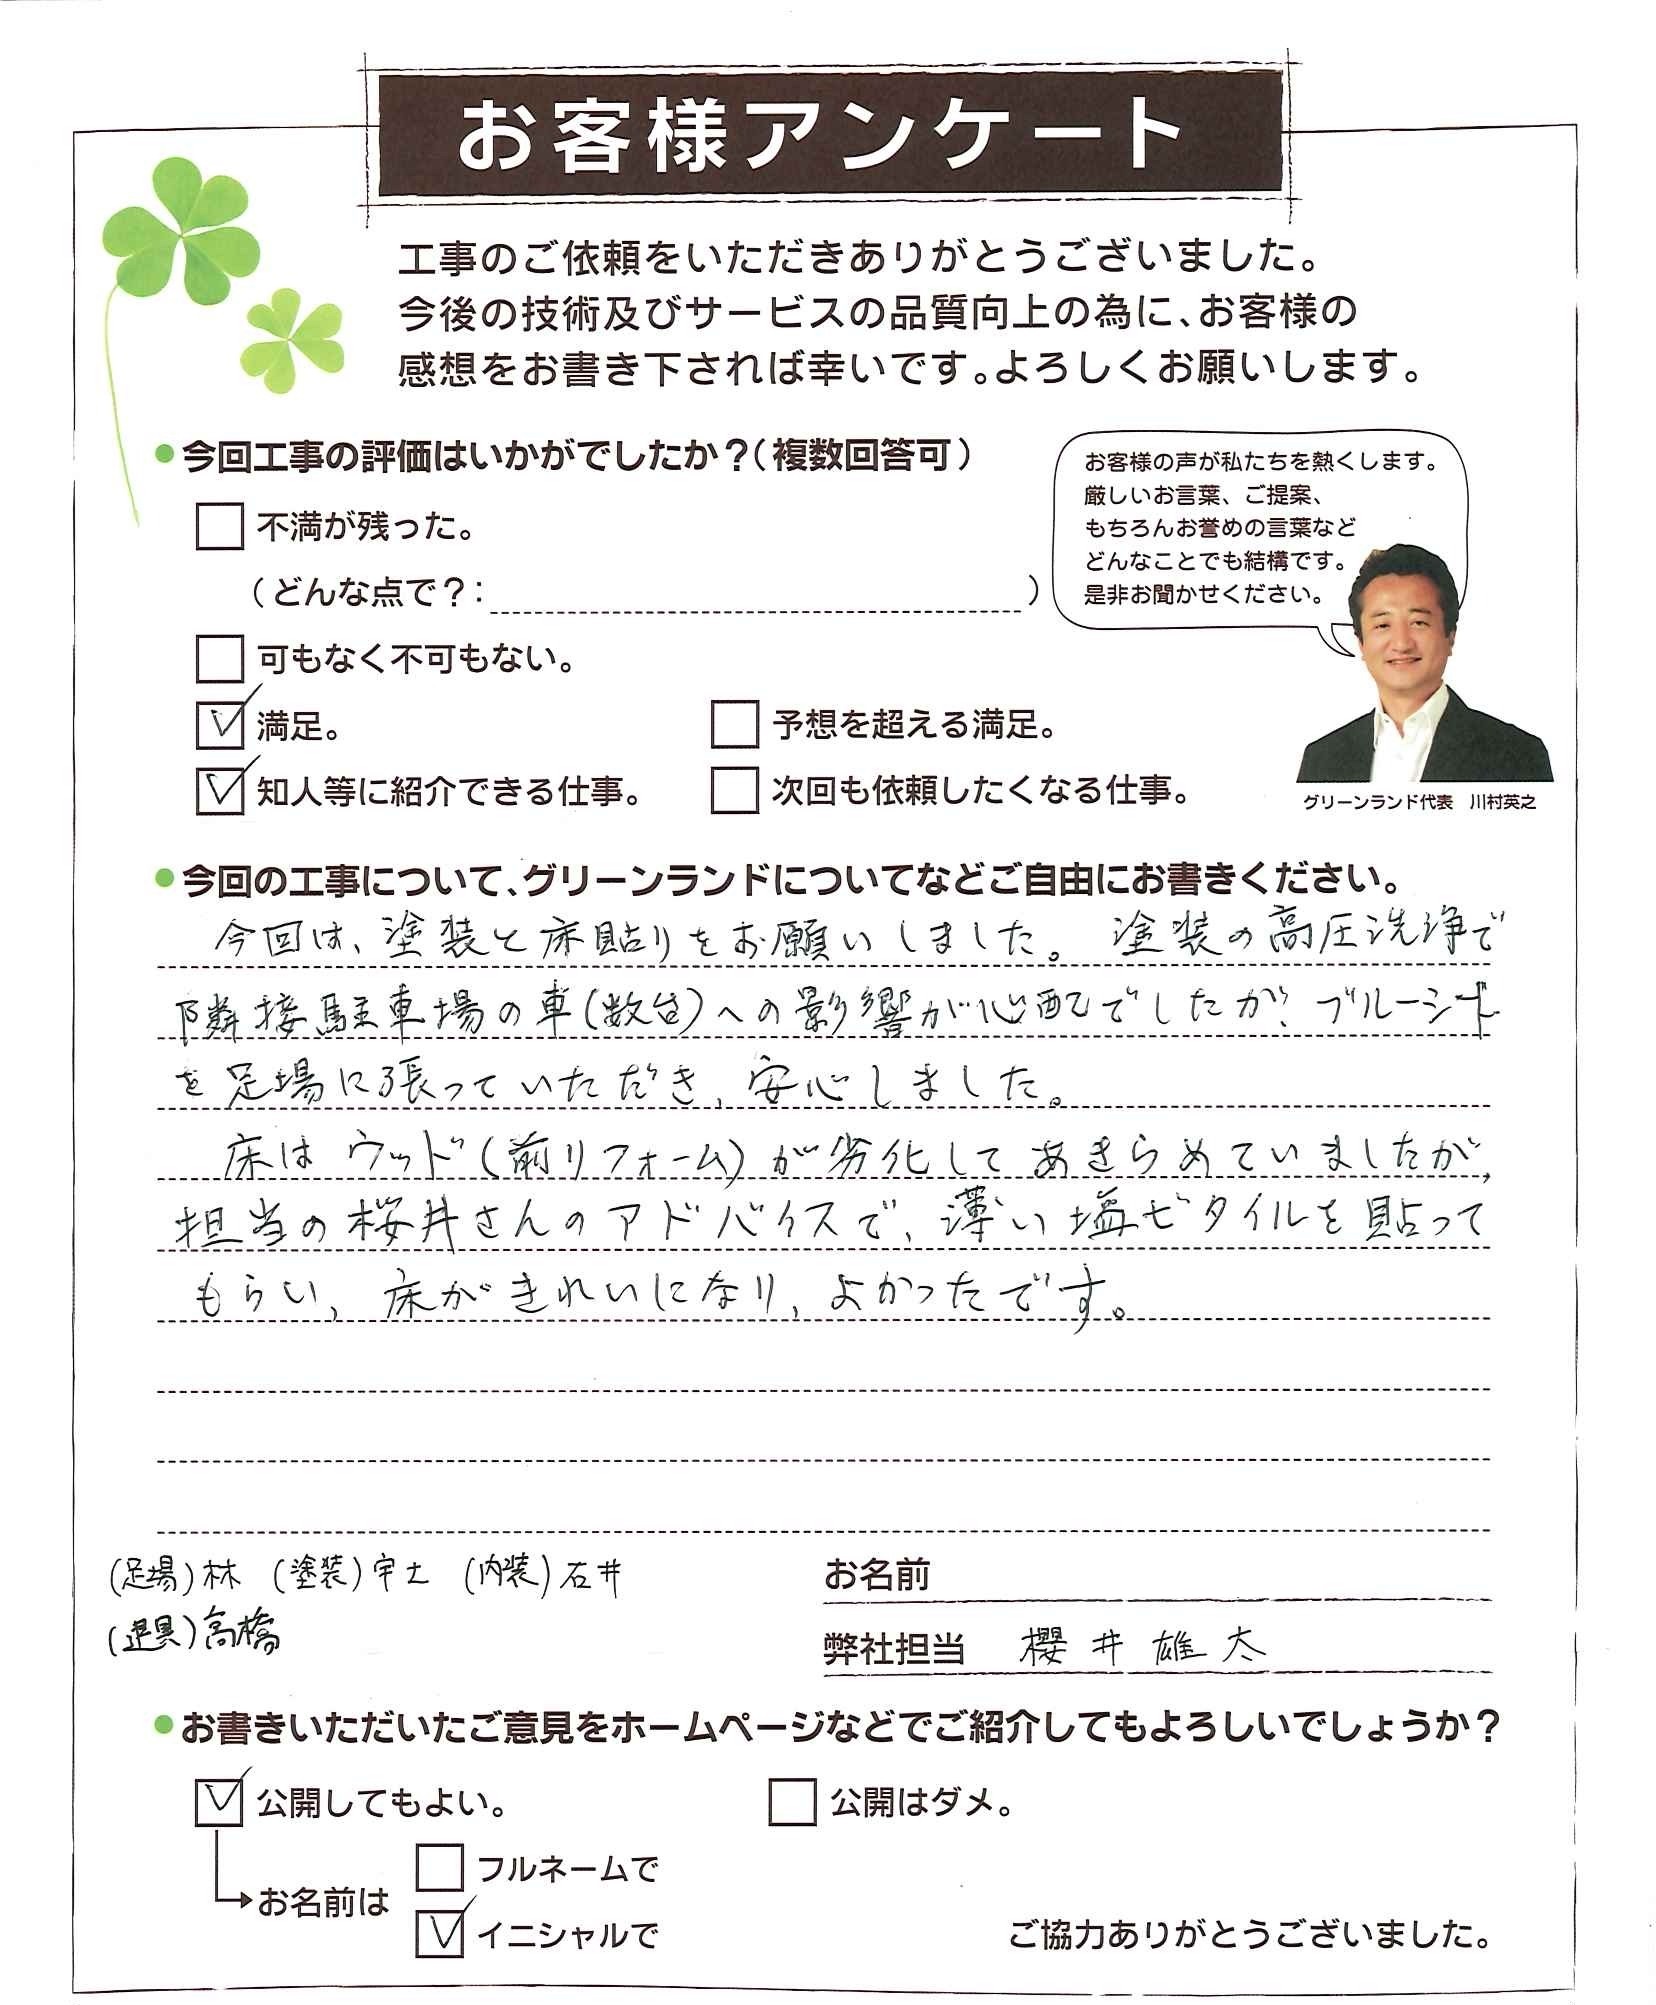 お客様アンケート
工事のご依頼をいただきありがとうございました。
今後の技術及びサービスの品質向上の為に、お客様の
感想をお書き下されば幸いです。よろしくお願いします。
●今回工事の評価はいかがでしたか？（複数回答可）
不満が残った。
（どんな点で？：　　　）
可もなく不可もない。
満足。
予想を超える満足。
知人等に紹介できる仕事。
次回も依頼したくなる仕事。
お客様の声が私たちを熱くします。
厳しいお言葉、ご提案、
もちろんお誉めの言葉など
どんなことでも結構です。
是非お聞かせください。
グリーンランド代表　川村英之
●今回の工事について、グリーンランドについてなどご自由にお書きください。
今回は、塗装と床貼りをお願いしました。塗装の高圧洗浄で
隣接駐車場の車(数台)への影響が心配でしたが、ブルーシート
を足場に張っていただき、安心しました。
床はウッド(前リフォーム)が劣化してあきらめていましたが、
担当の桜井さんのアドバイスで、薄い塩ビタイルを貼って
もらい、床がきれいになり、よかったです。
(足場)林　(塗装)宇土　(内装)石井
高橋
お名前
弊社担当　櫻井雄太
●お書きいただいたご意見をホームページなどでご紹介してもよろしいでしょうか？
公開してもよい。
公開はダメ。
お名前は
フルネームで
イニシャルで
ご協力ありがとうございました。